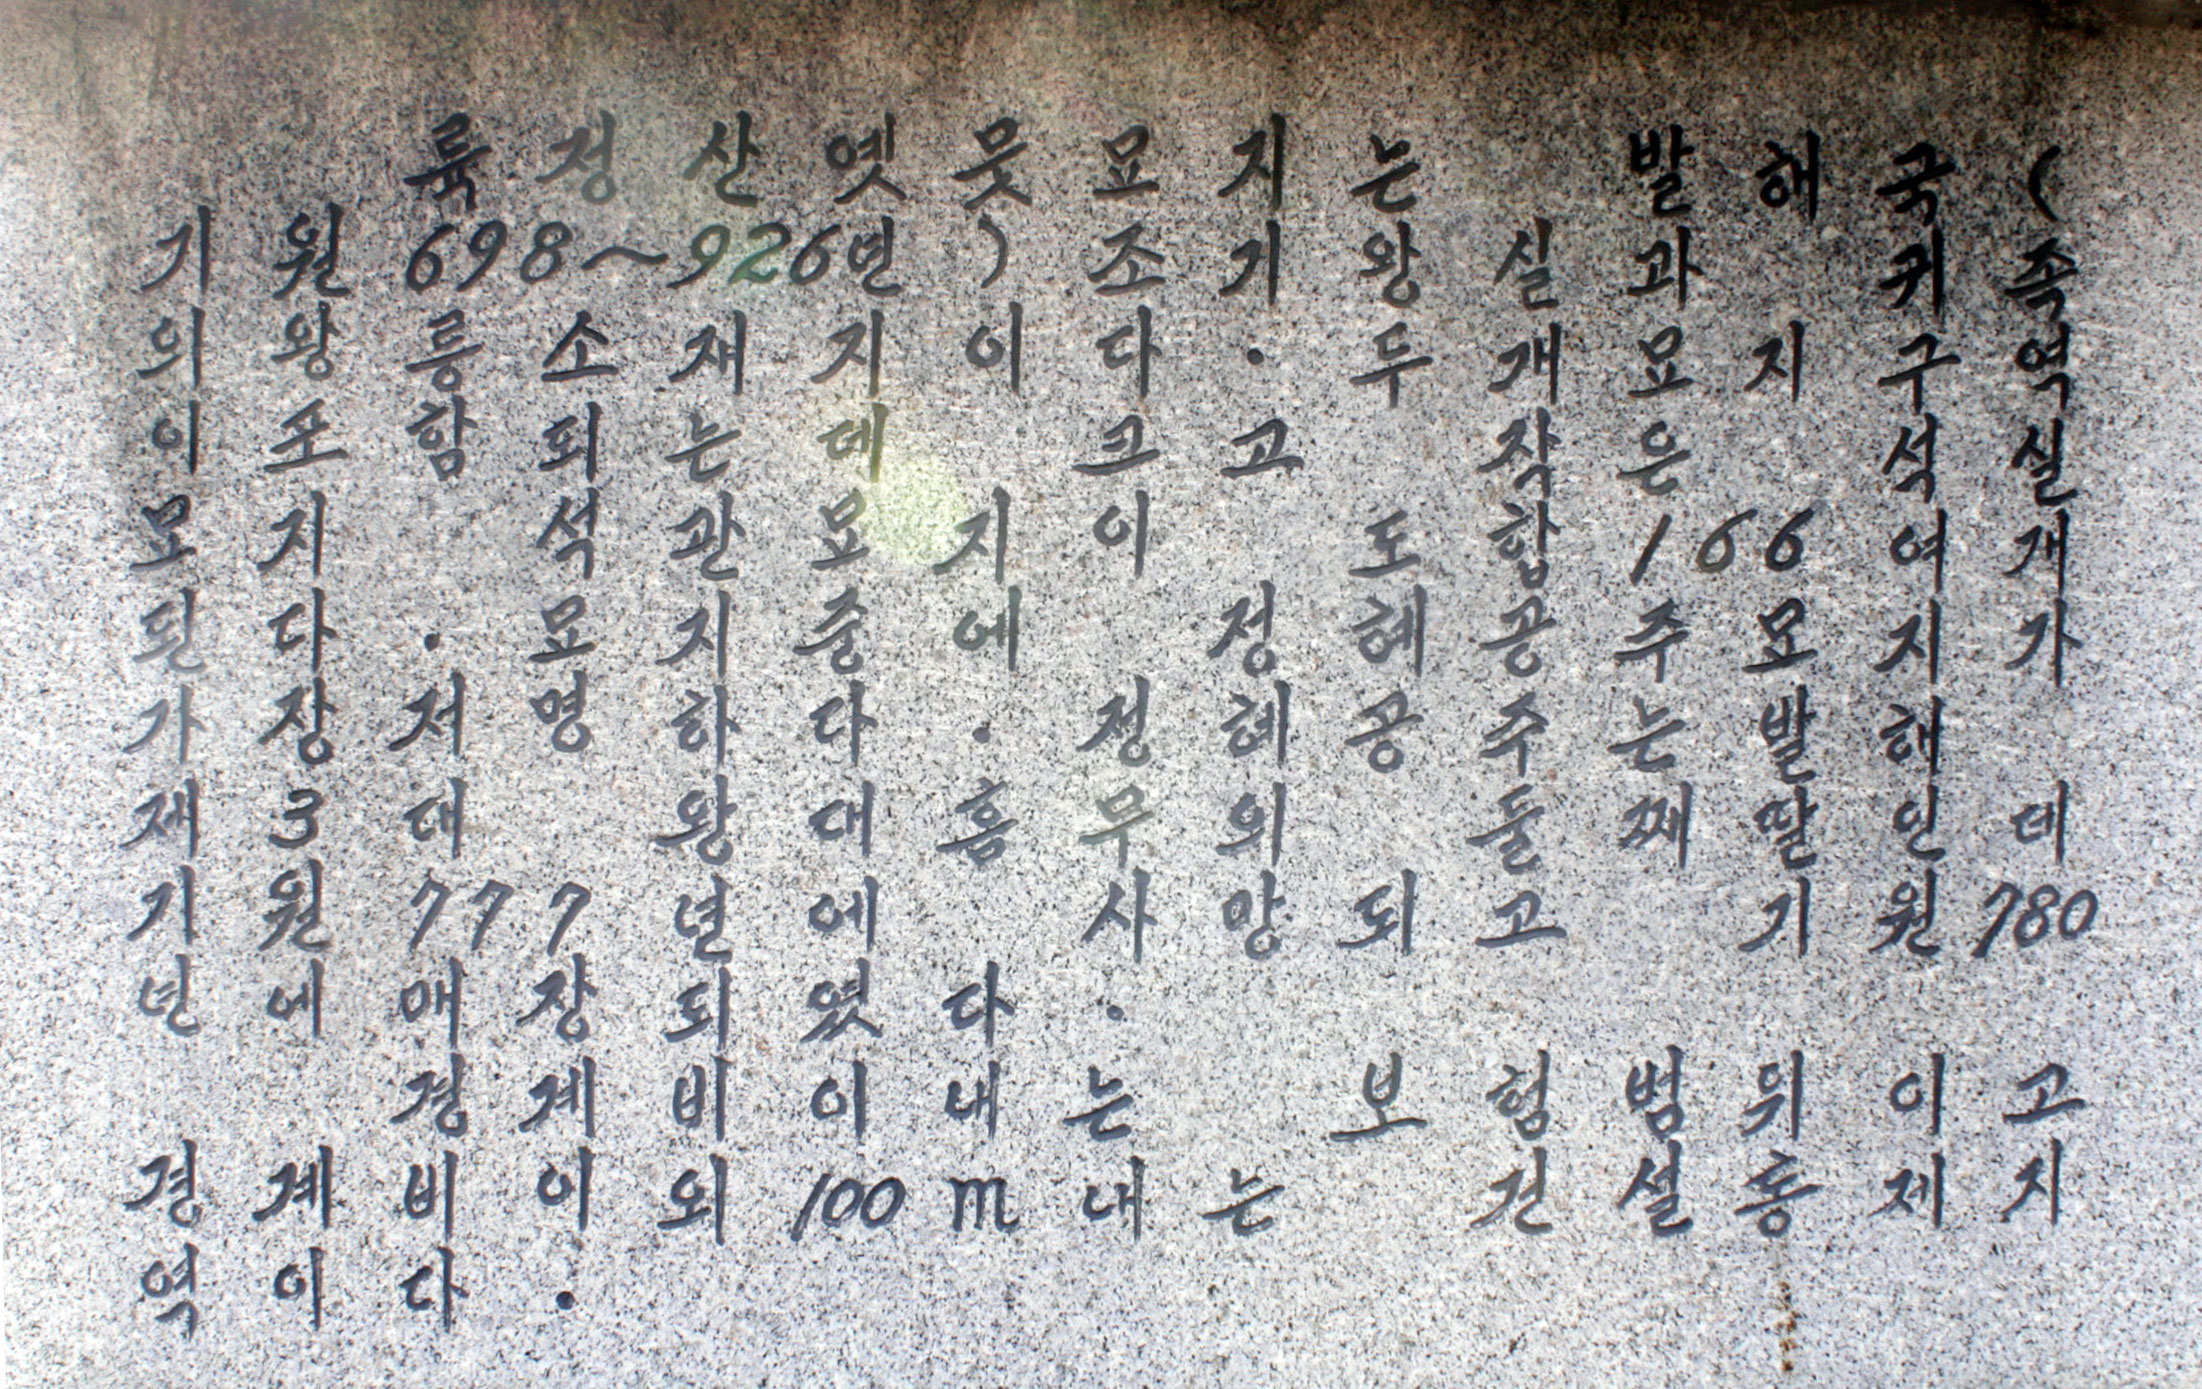 륙정산옛뭇묘지는 발해국(
기원698~926년)조기왕실과 귀족
의왕릉소재지이다.두개묘지구역
이포함되는데 크고 작은 석실
묘지 석관묘지이 도합166여개
된다.묘지중에 정혜공주묘지가
가장저명하다.정혜공주는발해
재3대 왕대흠무의둘째딸인데
기원777년에 사망되고 기원780
년에매장되였다.
경계비이내는 보험범위이고
경계비외100m내는 건설통제지
역이다.